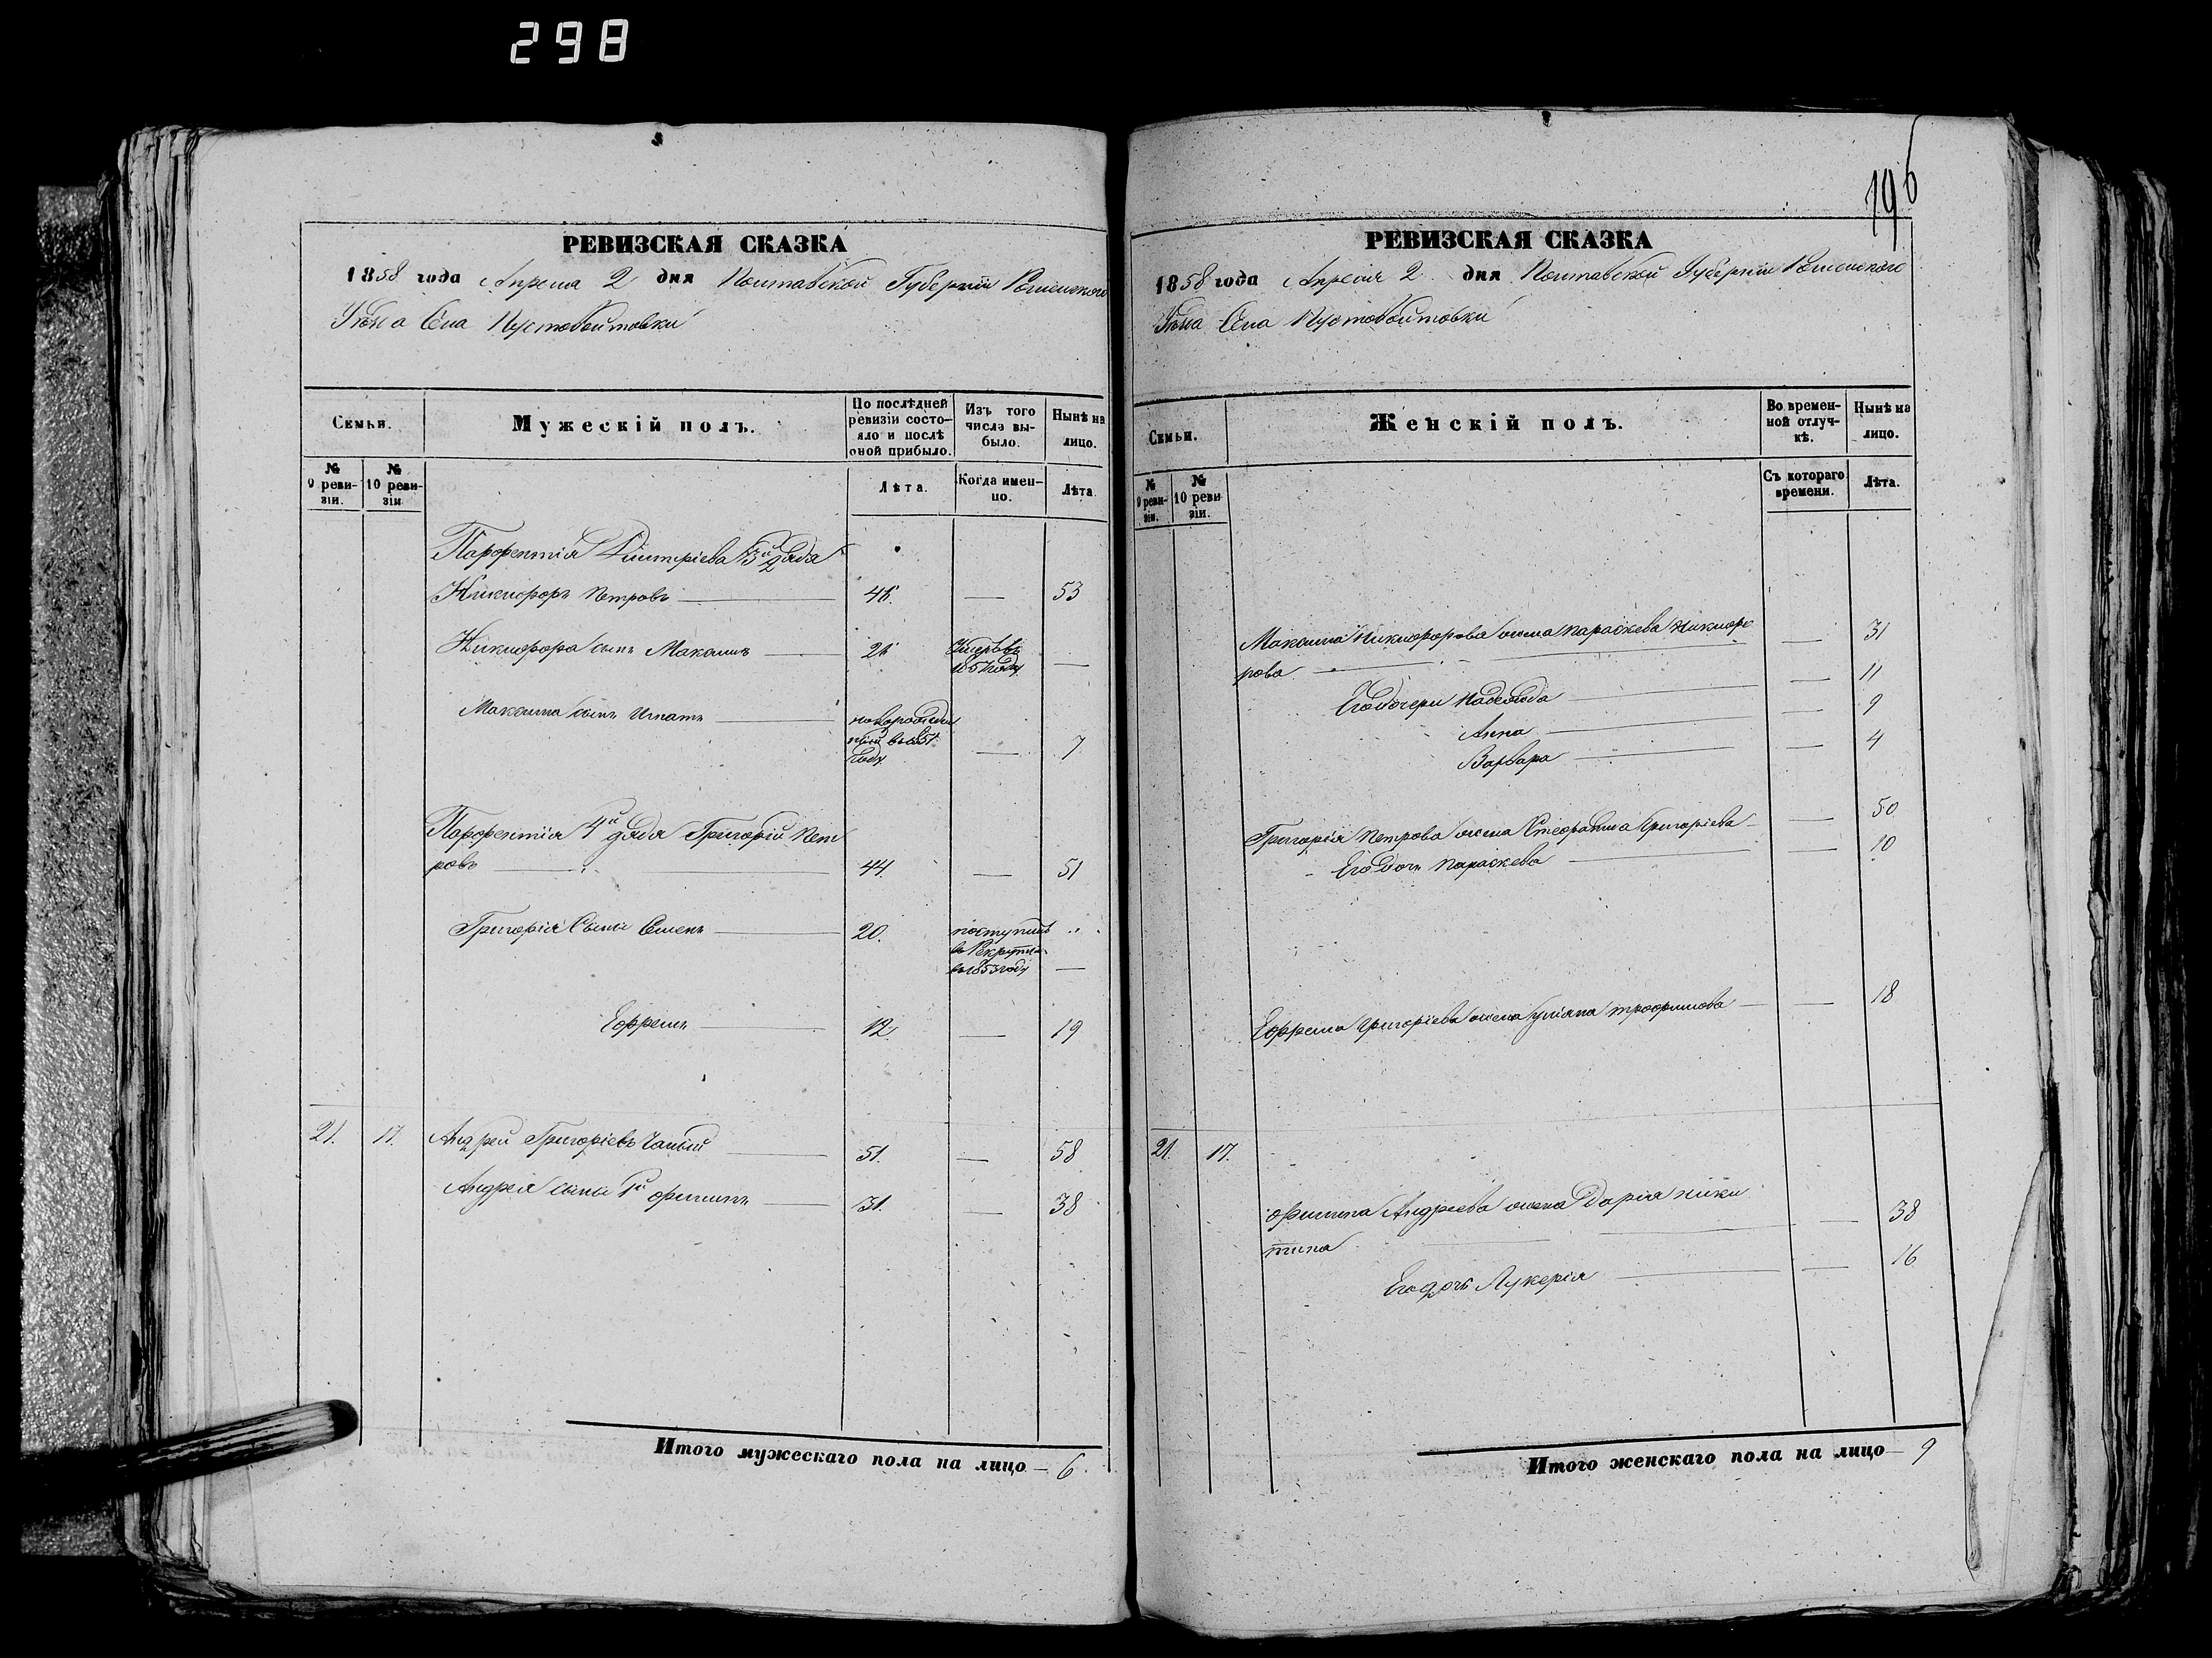 298
196
РЕВИЗСКАЯ СКАЗКА
1858 года Апреля 2 дня Полтавской Губерніи Роменского
Уѣзда Села Пустовойтовки
Семьи.
Мужескій полъ.
По послѣдней ревизіи состояло и послѣ оной прибыло.
Изъ того числа выбыло.
Нынѣ на лицо.
№ 9 ревизіи.
№ 10 ревизіи
Лѣта.
Когда именно.
Лѣта.
Парфентія Дмитріева 3й дядя
Никифоръ Петровъ 46. — 53
Никифора сынъ Максимъ 26 Умеръ въ 1857 году —
Максима сынъ Игнатъ новорожденный въ 1851 году — 7
Парфентія 4й дядя Григорій Пет
ровъ 44. — 51
Григорія Сыны Семенъ 20. поступилъ в Рекруты в 1853 году —
Ефремъ 12. — 19
21. 17. Андрей Григоріевъ 51. — 58
Андрея сыны 1й Филипъ 31. — 38
Итого мужескаго пола на лицо — 6.
РЕВИЗСКАЯ СКАЗКА
1858 года Апреля 2 дня Полтавской Губерніи Роменского
Уѣзда Села Пустовойтовки
Семьи.
Женскій полъ.
Во временной отлучкѣ.
Нынѣ на лицо.
№ 9 ревизіи.
№ 10 ревизіи.
Съ котораго времени.
Лѣта.
Максима Никифорова жена Параскева Никифо
рова — 31
Его дочери Надежда — 11
Анна — 9
Варвара — 4
Григорія Петрова жена Стефанида Григоріева — 50
Его дочь Параскева — 10
Ефрема Григоріева жена Уліяна Трофимова — 18
21. 17.
Филипа Андреева жена Дарія Ники
тина — 38
Его дочь Лукерія — 16
Итого женскаго пола на лицо — 9